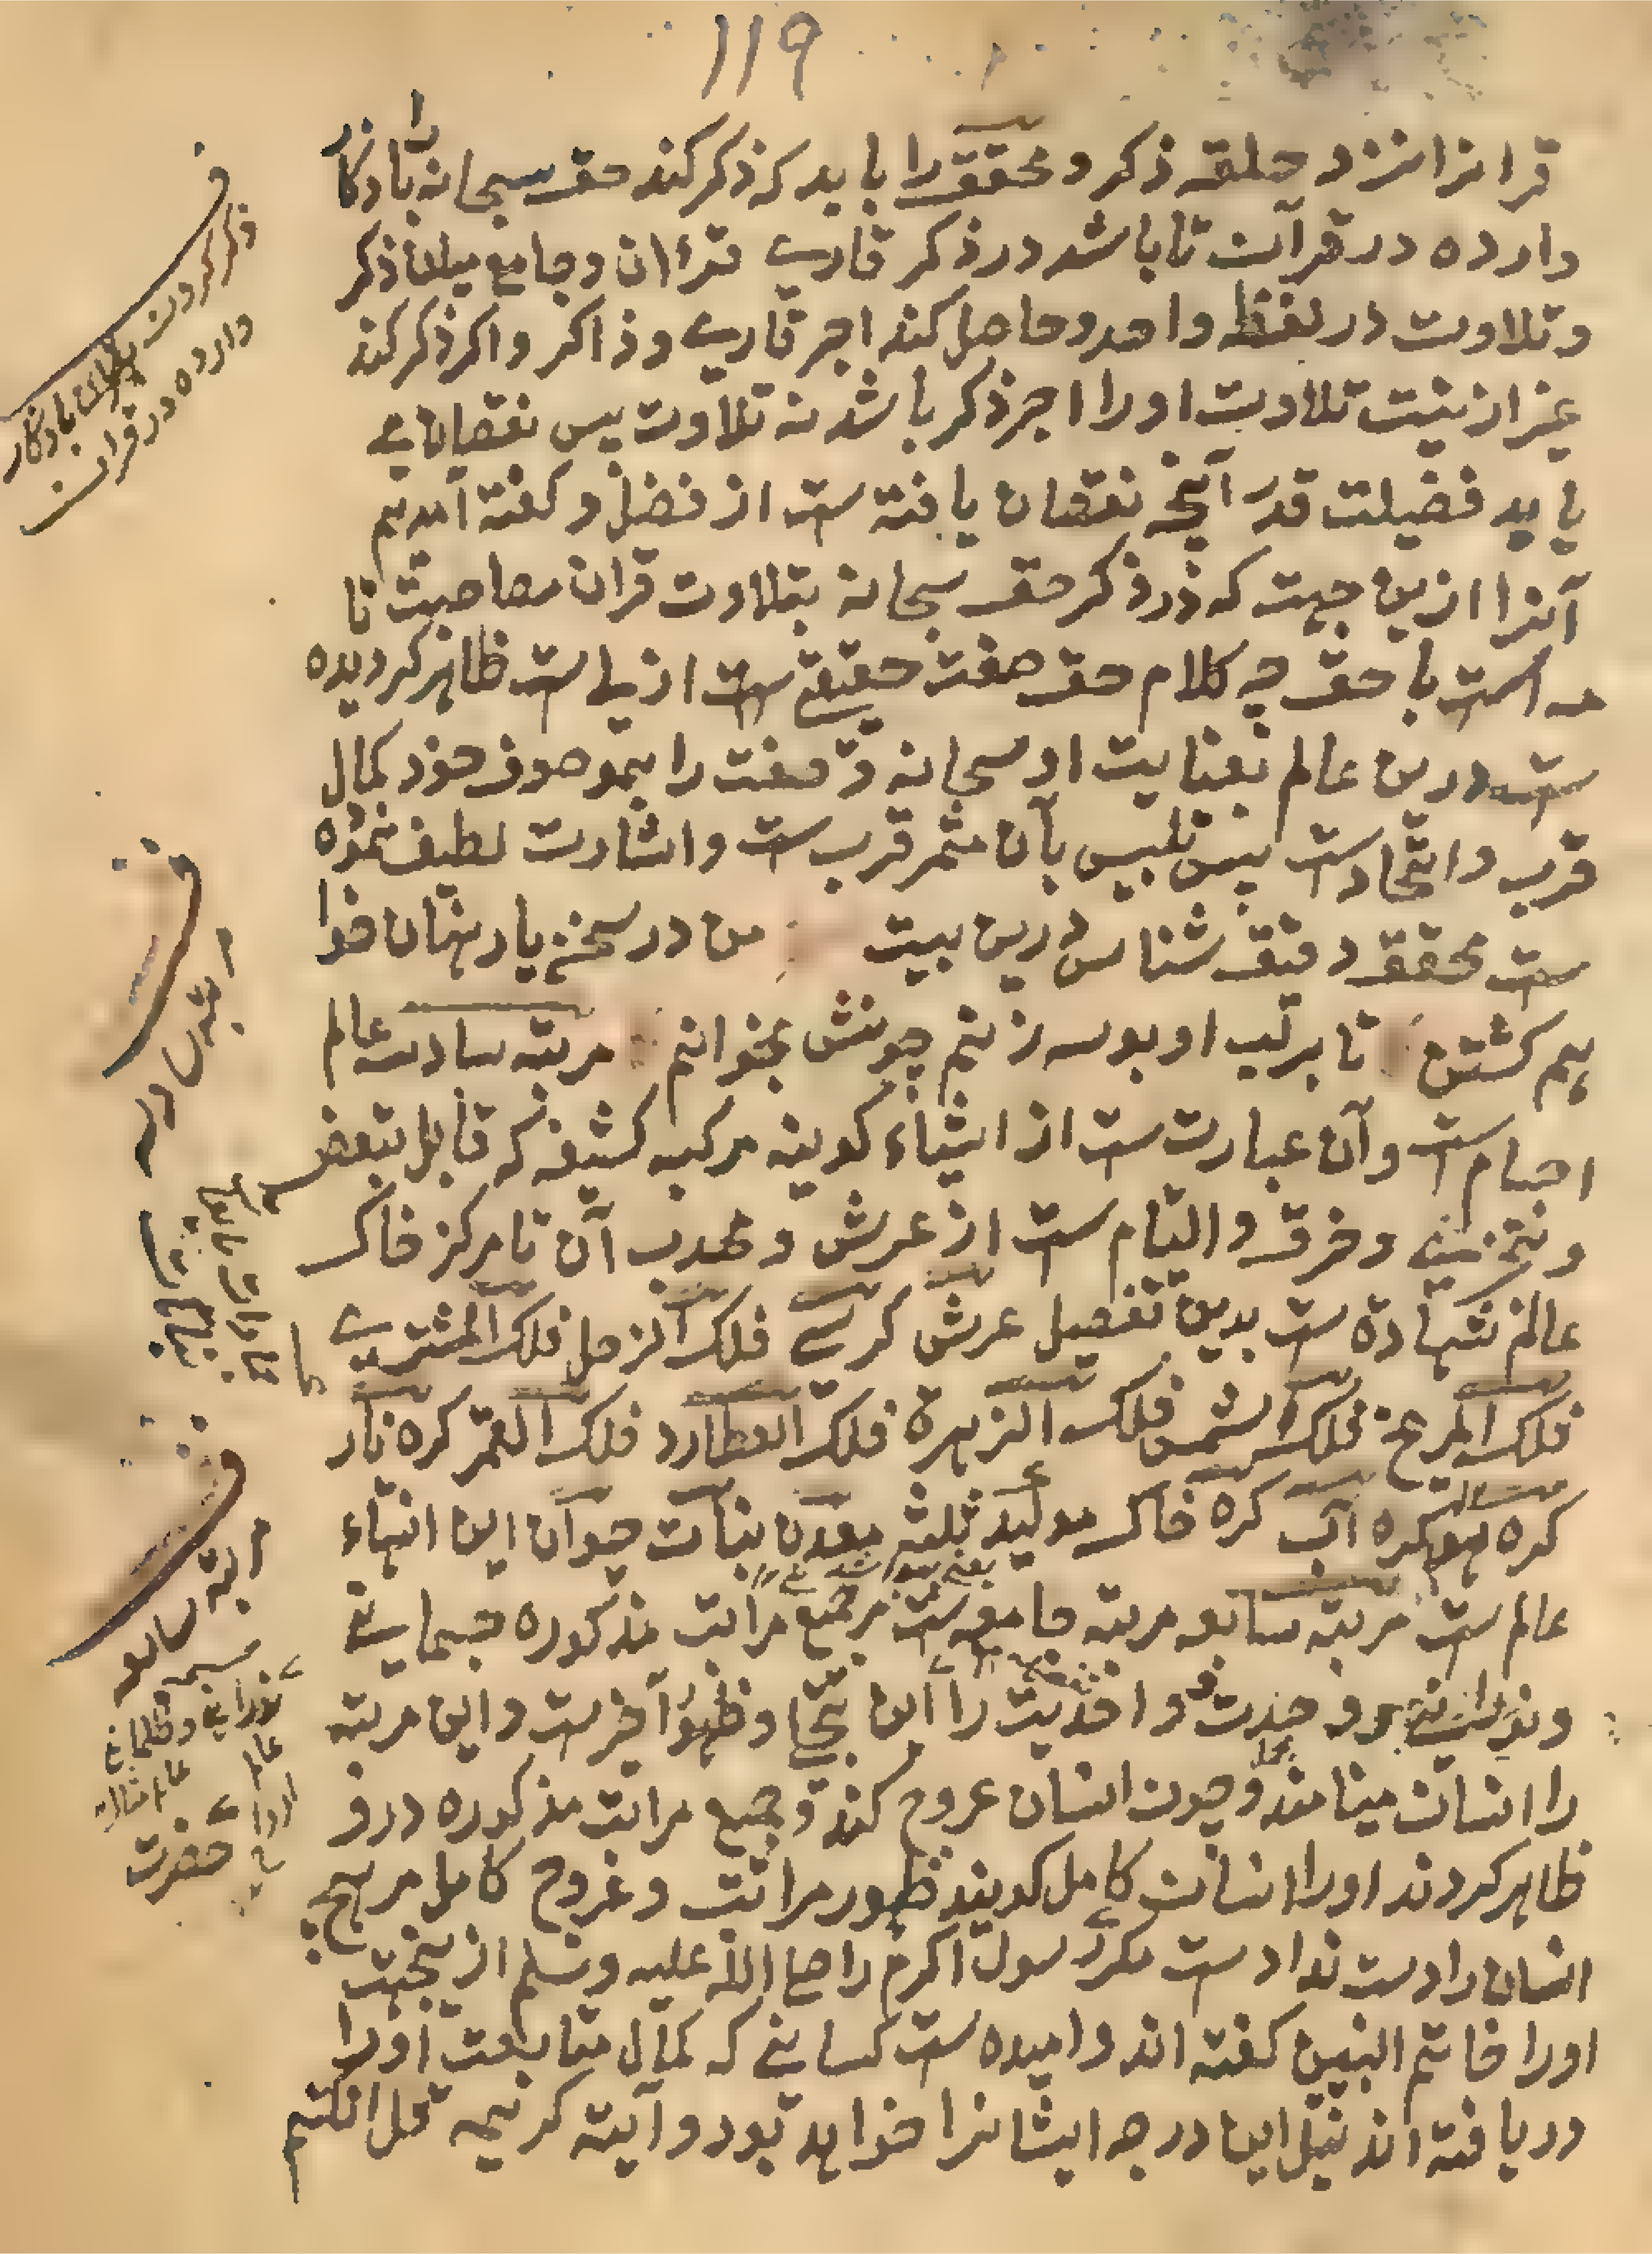 ١١٩
قرا نرا نزد حلقه ذکر و محقق را باید که ذکر کند حق سبحانه را باذکار
وارده در قرآن تا باشد در ذکر قاری قرءان و جامع میان ذکر
و تلاوت در لفظ واحد و حاصل کند اجر قاری و ذاکر و اکر ذکر کند
غیر از نیت تلاوت او را اجر ذکر باشد نه تلاوت پس نقصان می
یابد فضیلت قدر آنچه نقصان یافته ست از فضل و کفته آمدیم
آنرا ازین جهت که در ذکر حق سبحانه بتلاوت قران مصاحبت تا
مه است با حق چه کلام حق صفت حقیقی ست ازلی است ظاهر کردیده
ست درین عالم بعنایت او سبحانه و صفت را بموصوف خود کمال
قرب و اتحادست پس تلبس بآن مثمر قرب ست و اشارت لطیف نموده
ست محقق دقیق شناس درین بیت من در سخن یار نهان خوا
هم کشتن تا بر لب او بوسه زنم چونش بخوانم مرتبه سادسه عالم
اجسام ست و آن عبارت ست از اشیاء کونیه مرکبه کثیفه که قابل تبعض
و تجزی و خرق و التیام ست از عرش و محدب آن تا مرکز خاک
عالم شهادة ست بدین تفصیل عرش کرسی فلک الزحل فلک المشتری
فلک المریخ فلک الشمس فلک الزهرة فلک العطارد فلک القمر کره نار
کره هوا کره آب کره خاک موالید ثلثه معدن نبات حیوان این انتهاء
عالم ست مرتبه سابعه مرتبه جامعه ست مر جمیع مراتب مذکوره جسمانی
و نورانی و وحدت و احدیت را این تجلی و ظهور آخرست و این مرتبه
را انسان مینامند و چون انسان عروج کند و جمیع مراتب مذکوره درو
ظاهر کردند او را انسان کامل کویند ظهور مراتب و عروج کامل مر هیچ
انسان را دست نداد ست مکر رسول اکرم را صلی الله علیه وسلم ازینجهت
او را خاتم النبیین کفته اند و امیده ست کسانی که کمال متابعت او را
دریافته اند نیل این درجه ایشانرا خواهد بود و آیة کریمه قل ان کنتم
ذکر کردن باذکار
وارده در قران
مرتبه سادسه
مرتبه سابعه
نورانی و ظلمانی
حضرت